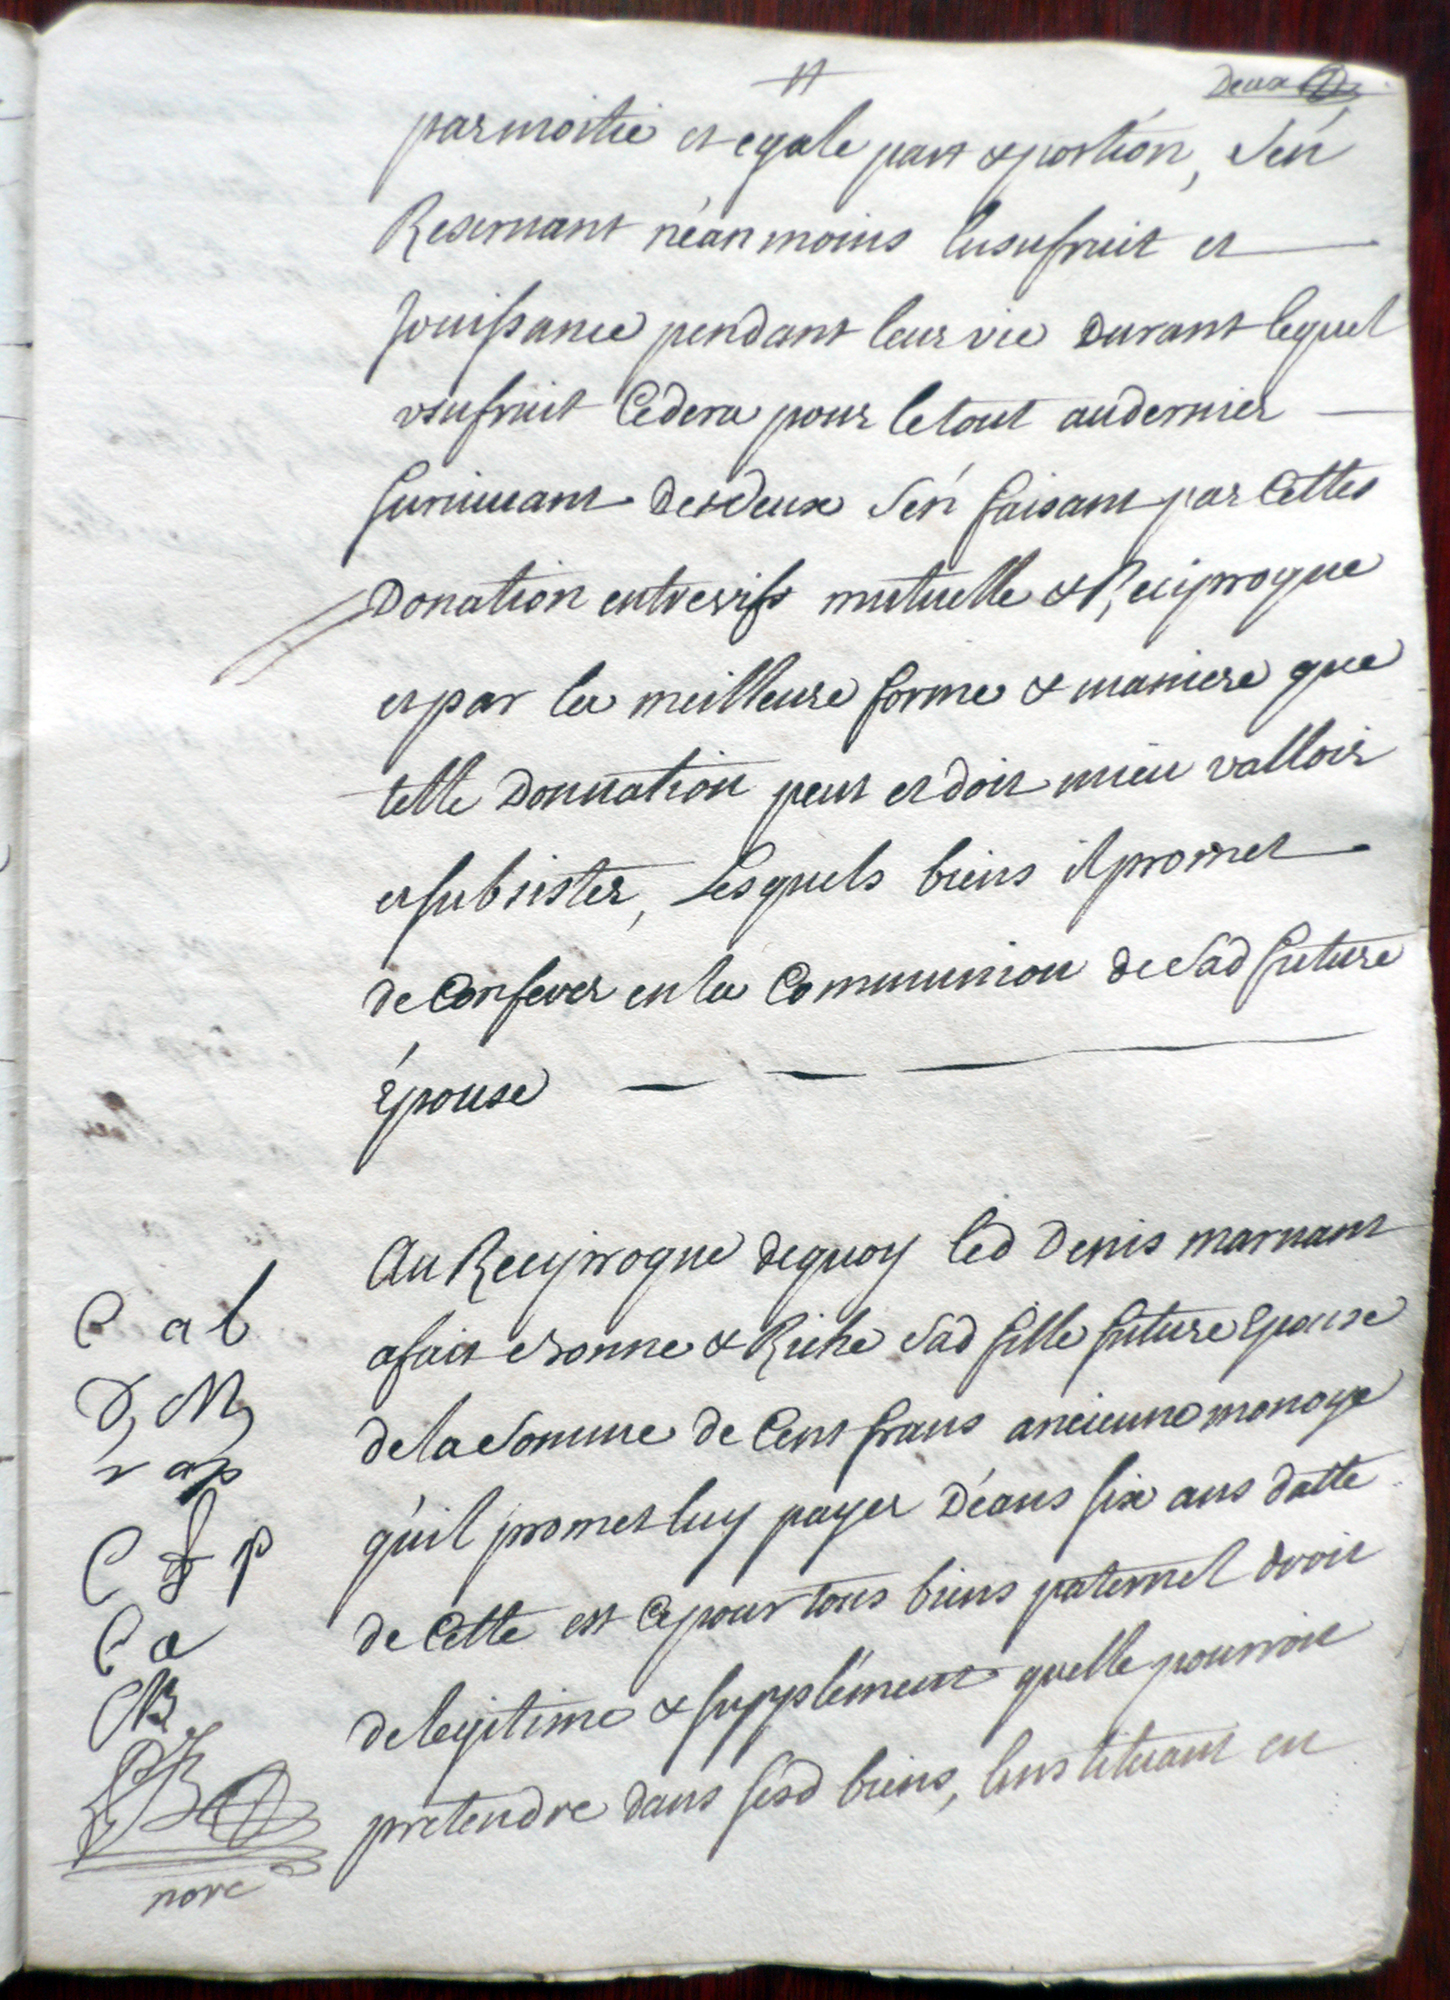 Deux
par moitié et egale part & portion, s'en
Reservant néan moins lusufruit et
Jouissance pendant leur vie durant lequel
usufruit Cedera pour le tout au dernier
survivant des deux s'en faisant par Cettes
Donation entre vifs mutuelle & Reciproque
et par la meilleure forme & maniere que
telle Donnation peut et doit mieu valloir
et subsister, Lesquels biens il promet
de Conferer en la Communion de sad future
Épouse
Au Reciproque dequoy led Denis marnant
a fait donne & Riche sad fille future Epouse
de la Somme de Cent frans anciene monoye
qu'il promet luy payer D'éans six ans datte
de Cette est Ce pour tous biens paternel droit
de legitime & supplément quelle pourroit
C ab
pretendre dans sesd biens, Linstituant en
D, M,
C P
C a
nore